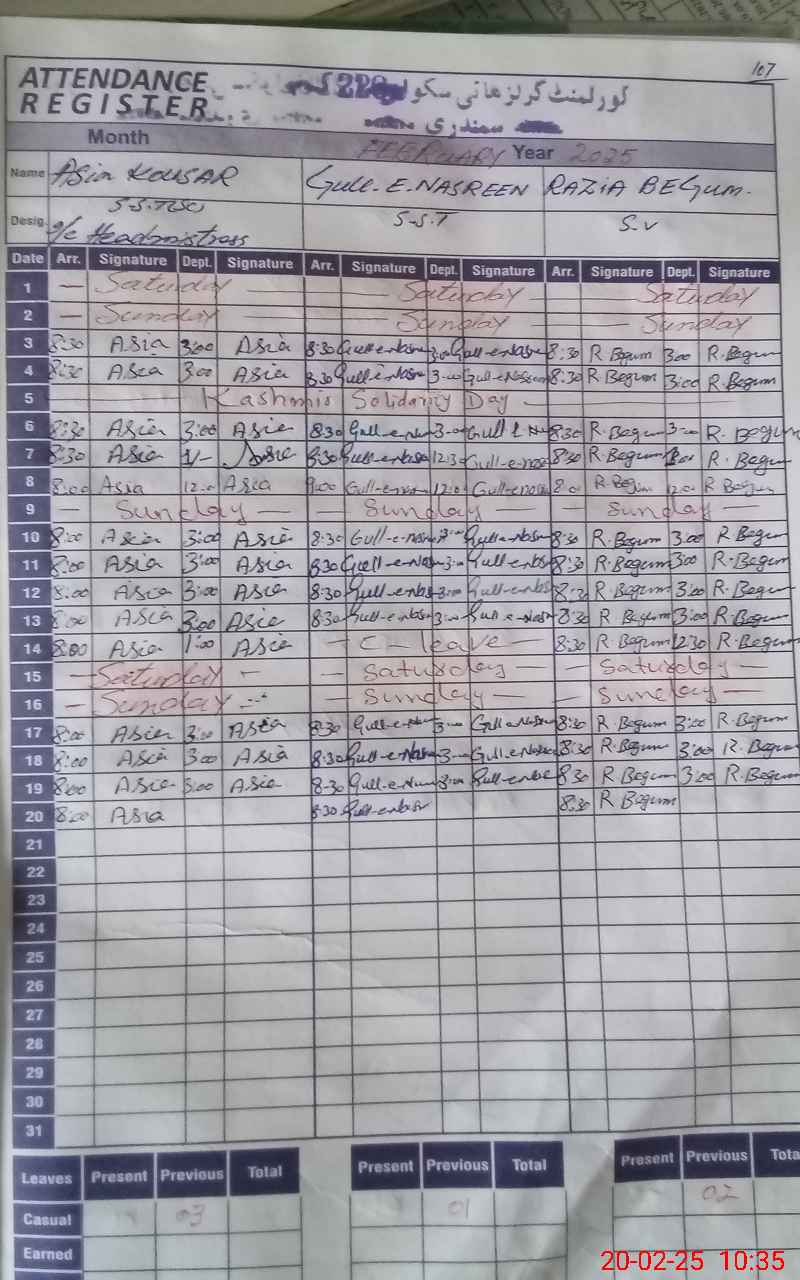 107
ATTENDANCE
REGISTER
گورنمنٹ گرلز ھائی سکول 228
سمندری
Month FEBRUARY Year 2025
Name Asia KOUSAR Gull-E-NASREEN RAZIA BEGUM.
Desig. S-S.T S.V
Headmistress
Date Arr. Signature Dept. Signature Arr. Signature Dept. Signature Arr. Signature Dept. Signature
1 — Saturday — Saturday — Saturday
2 — Sunday — Sunday — Sunday
3 8:30 Asia 3:00 Asia 8:30 Gull-e-Nasr 3:00 Gull-e-Nasr 8:30 R Begum 3:00 R.Begum
4 8:30 Asia 3:00 Asia 8:30 Gull-e-Nasr 3:00 Gull-e-Nasreen 8:30 R Begum 3:00 R.Begum
5 Kashmir Solidarity Day
6 8:30 Asia 3:00 Asia 8:30 Gull-e-Na 3:00 Gull e N 8:30 R.Begum 3:00 R.Begum
7 8:30 Asia 1/- Asia 8:30 Gull-e-nasr 12:30 Gull-e-nas 8:30 R.Begum R.Begum
8 8:00 Asia 12:0 Asia 9:00 Gull-e-nasr 12:0 Gull-e-nas 8:0 R.Begum 12:0 R Begum
9 — Sunday — — Sunday — — Sunday —
10 8:00 Asia 3:00 Asia 8:30 Gull-e-nas 3:00 Gull-e-Nasr 8:30 R.Begum 3:00 R Begum
11 8:00 Asia 3:00 Asia 8:30 Gull-e-Nas 3:00 Gull-e-Nasr 8:30 R.Begum 3:00 R.Begum
12 8:00 Asia 3:00 Asia 8:30 Gull-e-Nasr 3:00 Gull-e-Nasr 8:30 R.Begum 3:00 R.Begum
13 8:00 Asia 3:00 Asia 8:30 Gull-e-Nasr 3:00 Gull-e-Nasr 8:30 R Begum 3:00 R.Begum
14 8:00 Asia 1:00 Asia — C- leave — 8:30 R.Begum 12:30 R.Begum
15 — Saturday — — Saturday — — Saturday —
16 — Sunday — — Sunday — — Sunday —
17 8:00 Asia 3:00 Asia 8:30 Gull-e-Nas 3:00 Gull-e-Nasr 8:30 R.Begum 3:00 R.Begum
18 8:00 Asia 3:00 Asia 8:30 Gull-e-Nasr 3:00 Gull-e-Nasr 8:30 R.Begum 3:00 R.Begum
19 8:00 Asia 3:00 Asia 8:30 Gull-e-Nas 3:00 Gull-e-Nas 8:30 R.Begum 3:00 R.Begum
20 8:00 Asia 8:30 Gull-e-nasr 8:30 R Begum
21
22
23
24
25
26
27
28
29
30
31
Leaves Present Previous Total Present Previous Total Present Previous Tota
Casual 03 01 02
Earned
20-02-25 10:35